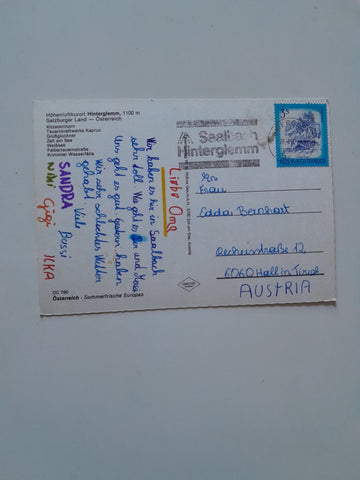 Höhenluftkurort Hinterglemm, 1100 m
Salzburger Land — Österreich
Kitzsteinhorn
Tauernkraftwerke Kaprun
Großglockner
Zell am See
Weißsee
Felbertauernstraße
Krimmler Wasserfälle
Liebe Oma
Wir haben es hie in Saalbach
sehr toll. Wie geht es dir und
Uns geht es gut. Gestern haben
Wir sehr schlechtes Wetter
gehabt.
Viele Bussi
SANDRA
Niki Gigi ILKA
OC 760
Österreich - Sommerfrische Europas
Saalbach
Hinterglemm
3 S
An
Frau
Edda Bernhart
6060 Hall in Tirol
AUSTRIA